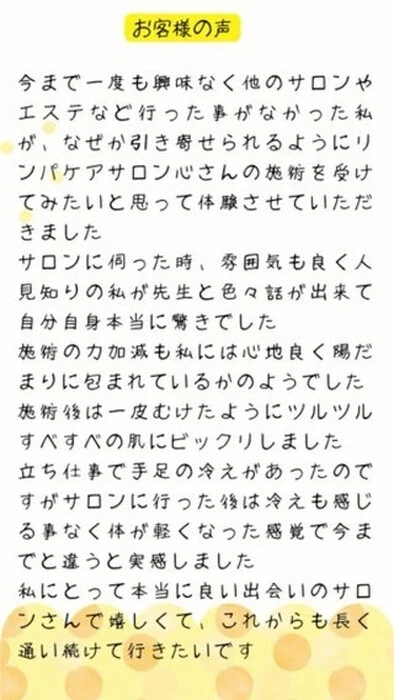 お客様の声
今まで一度も興味なく他のサロンや
エステなど行った事がなかった私
が、なぜか引き寄せられるようにリ
ンパケアサロン心さんの施術を受け
てみたいと思って体験させていただ
きました
サロンに伺った時、雰囲気も良く人
見知りの私が先生と色々話が出来て
自分自身本当に驚きでした
施術の力加減も私には心地良く陽だ
まりに包まれているかのようでした
施術後は一皮むけたようにツルツル
すべすべの肌にビックリしました
立ち仕事で手足の冷えがあったので
すがサロンに行った後は冷えも感じ
る事なく体が軽くなった感覚で今ま
でと違うと実感しました
私にとって本当に良い出会いのサロ
ンさんで嬉しくて、これからも長く
通い続けて行きたいです